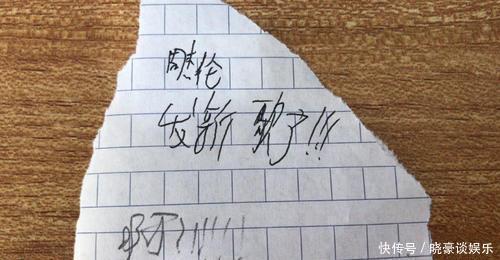 周杰伦
发新歌了!!!
啊?!!!!!
快传号/晓豪谈娱乐